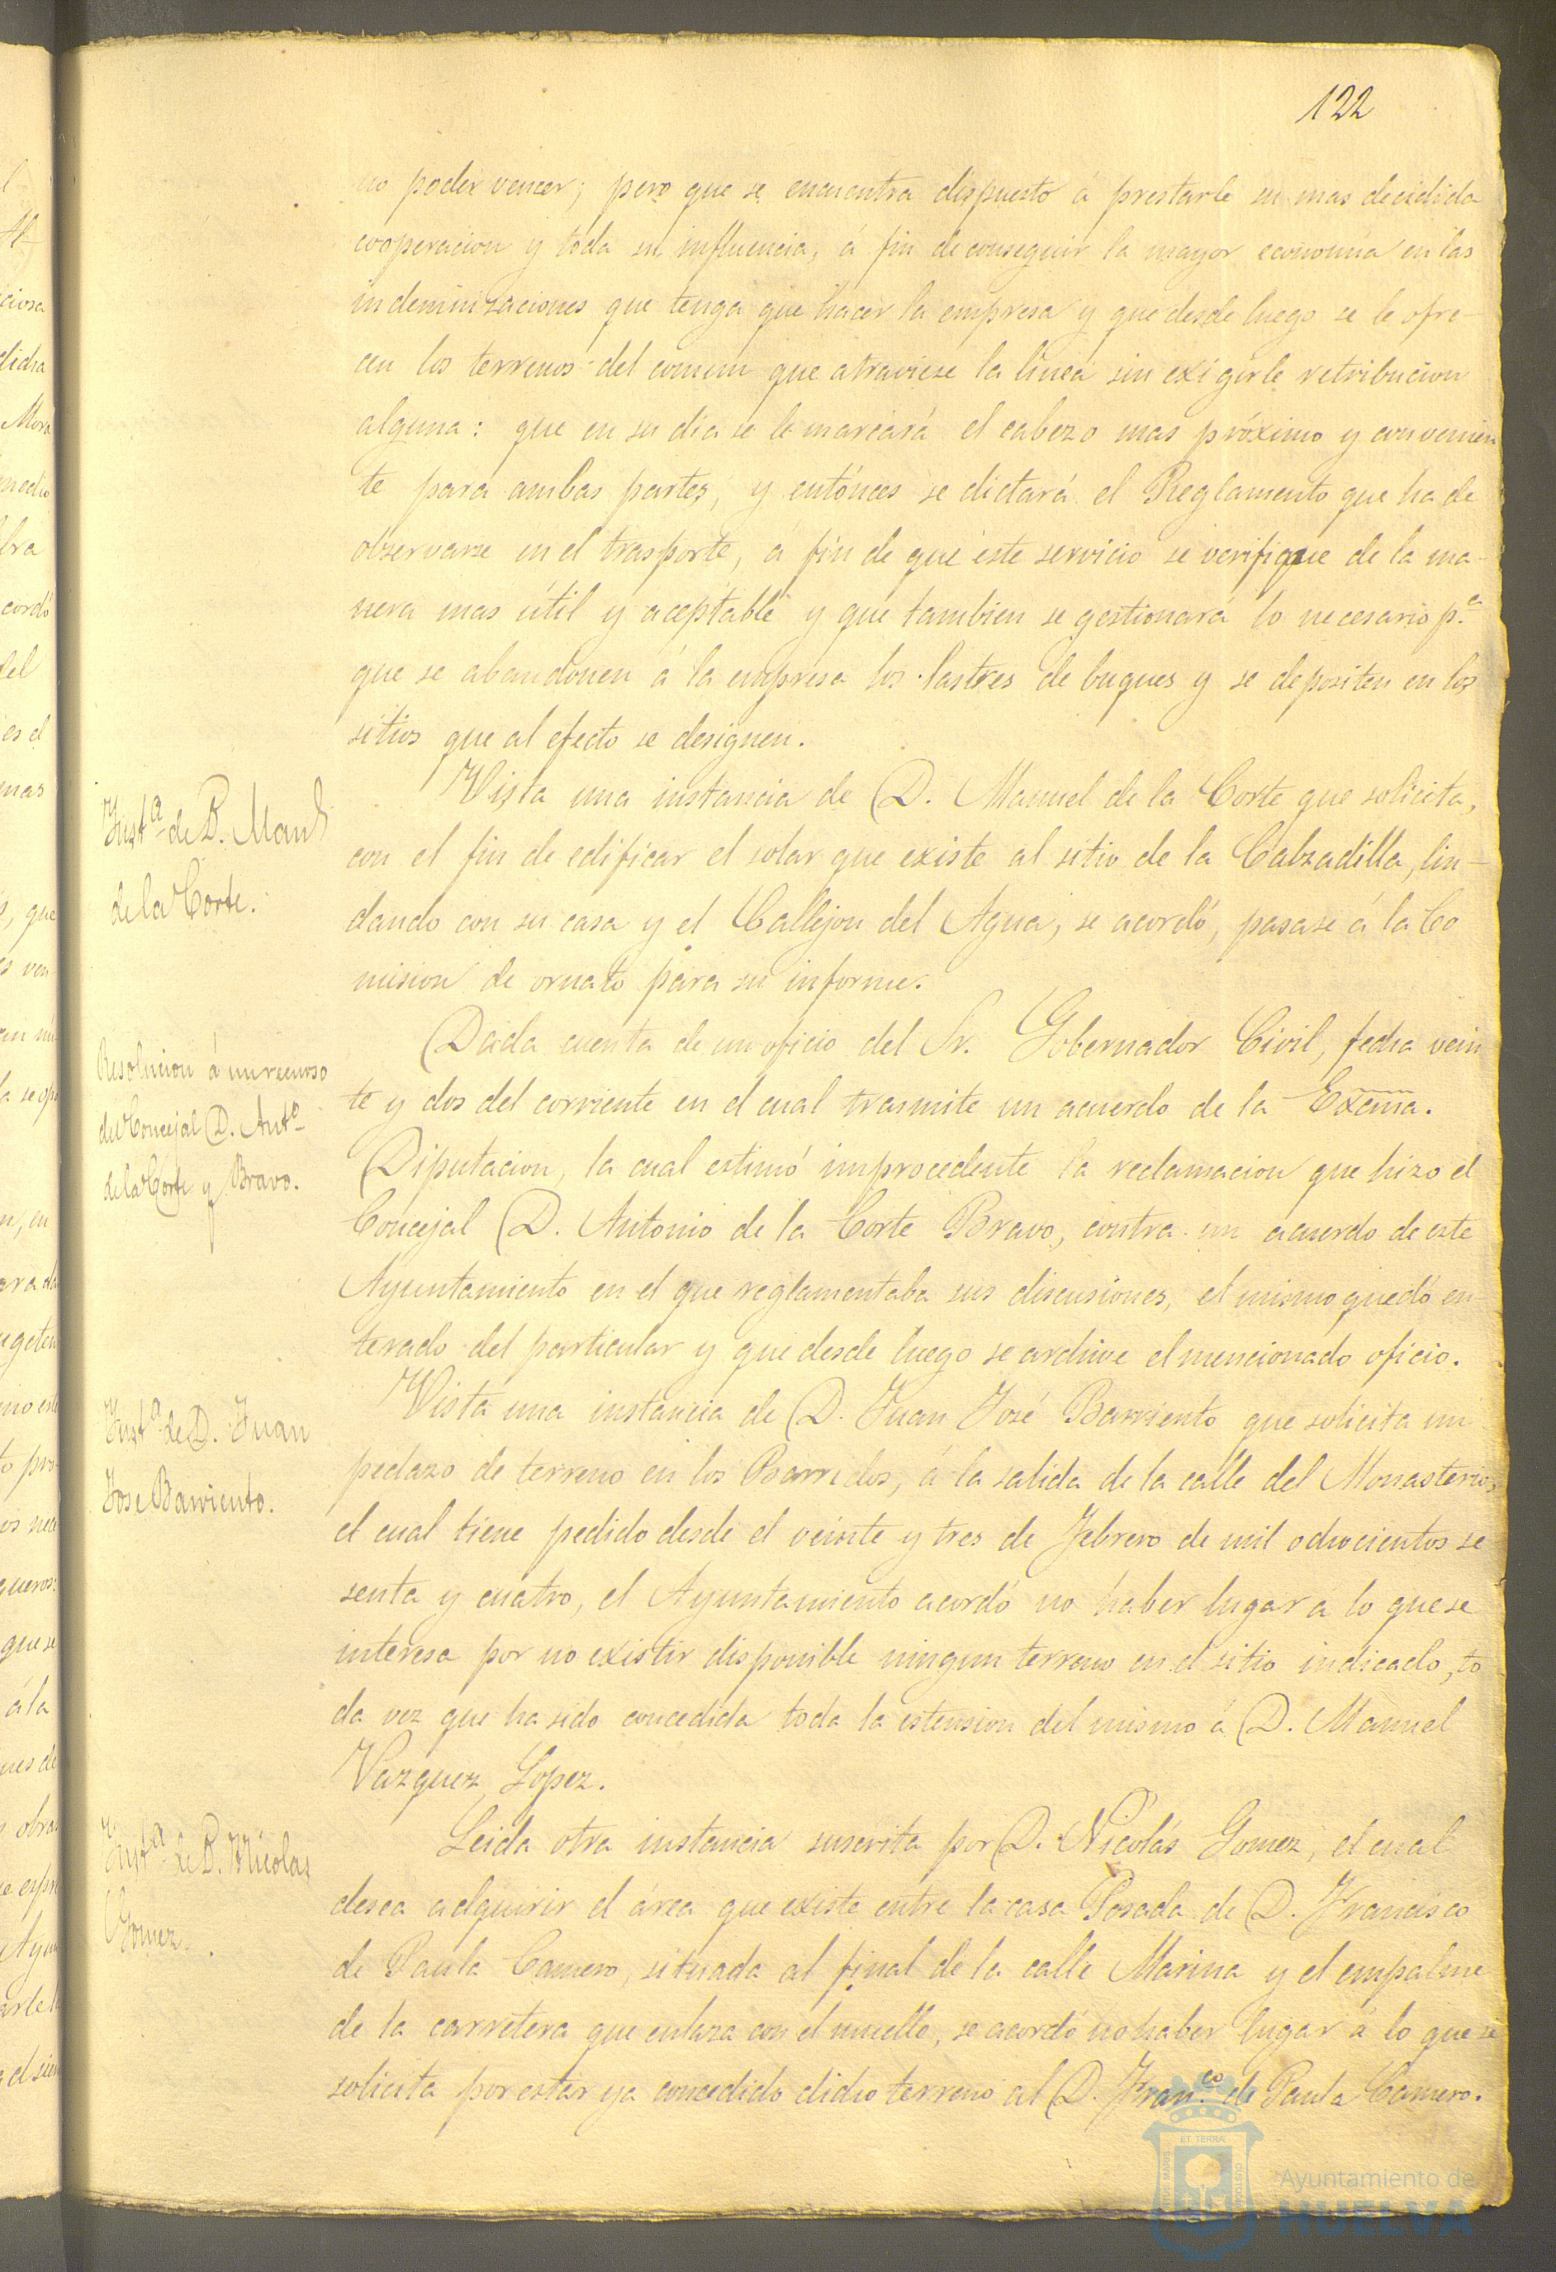 122
no poder vencer; pero que se encuentra dispuesto á prestarle su mas decidida
cooperacion y toda su influencia, á fin de conseguir la mayor economía en las
indemnizaciones que tenga que hacer la empresa y que desde luego se le ofre-
cen los terrenos del comun que atraviese la linea sin exigirle retribucion
alguna: que en su dia se le marcará el cabezo mas próximo y convenien
te para ambas partes, y entónces se dictará el Reglamento que ha de
observarse en el trasporte, á fin de que este servicio se verifique de la ma-
nera mas útil y aceptable y que tambien se gestionará lo necesario p.ª
que se abandonen á la empresa los lastres de buques y se depositen en los
sitios que al efecto se designen.
Inst.ª de D. Man.l
de la Corte.
Vista una instancia de D. Manuel de la Corte que solicita,
con el fin de edificar el solar que existe al sitio de la Calzadilla, lin-
dando con su casa y el Callejon del Agua, se acordó, pasase á la Co
mision de ornato para su informe.
Resolucion á un recurso
del Concejal D. Ant.º
de la Corte y Bravo.
Dada cuenta de un oficio del Sr. Gobernador Civil, fecha vein
te y dos del corriente en el cual trasmite un acuerdo de la Excma.
Diputacion, la cual estimó improcedente la reclamacion que hizo el
Concejal D. Antonio de la Corte Bravo, contra un acuerdo de este
Ayuntamiento en el que reglamentaba sus discusiones, el mismo quedó en-
terado del particular y que desde luego se archive el mencionado oficio.
Inst.ª de D. Juan
Jose Barriento.
Vista una instancia de D. Juan José Barriento que solicita un
pedazo de terreno en los Barredos, á la salida de la calle del Monasterio,
el cual tiene pedido desde el veinte y tres de Febrero de mil ochocientos se
senta y cuatro, el Ayuntamiento acordó no haber lugar a lo que se
interesa por no existir disponible ningun terreno en el sitio indicado, to
da vez que ha sido concedida toda la estension del mismo á D. Manuel
Vazquez Lopez.
Inst.ª de D. Nicolas
Gomez.
Leida otra instancia suscrita por D. Nicolás Gomez, el cual
desea adquirir el área que existe entre la casa Posada de D. Francisco
de Paula Camero, situada al final de la calle Marina y el empalme
de la carretera que enlaza con el muelle, se acordó no haber lugar á lo que se
solicita por estar ya concedido dicho terreno al D. Fran.co de Paula Camero.
Ayuntamiento de
HUELVA